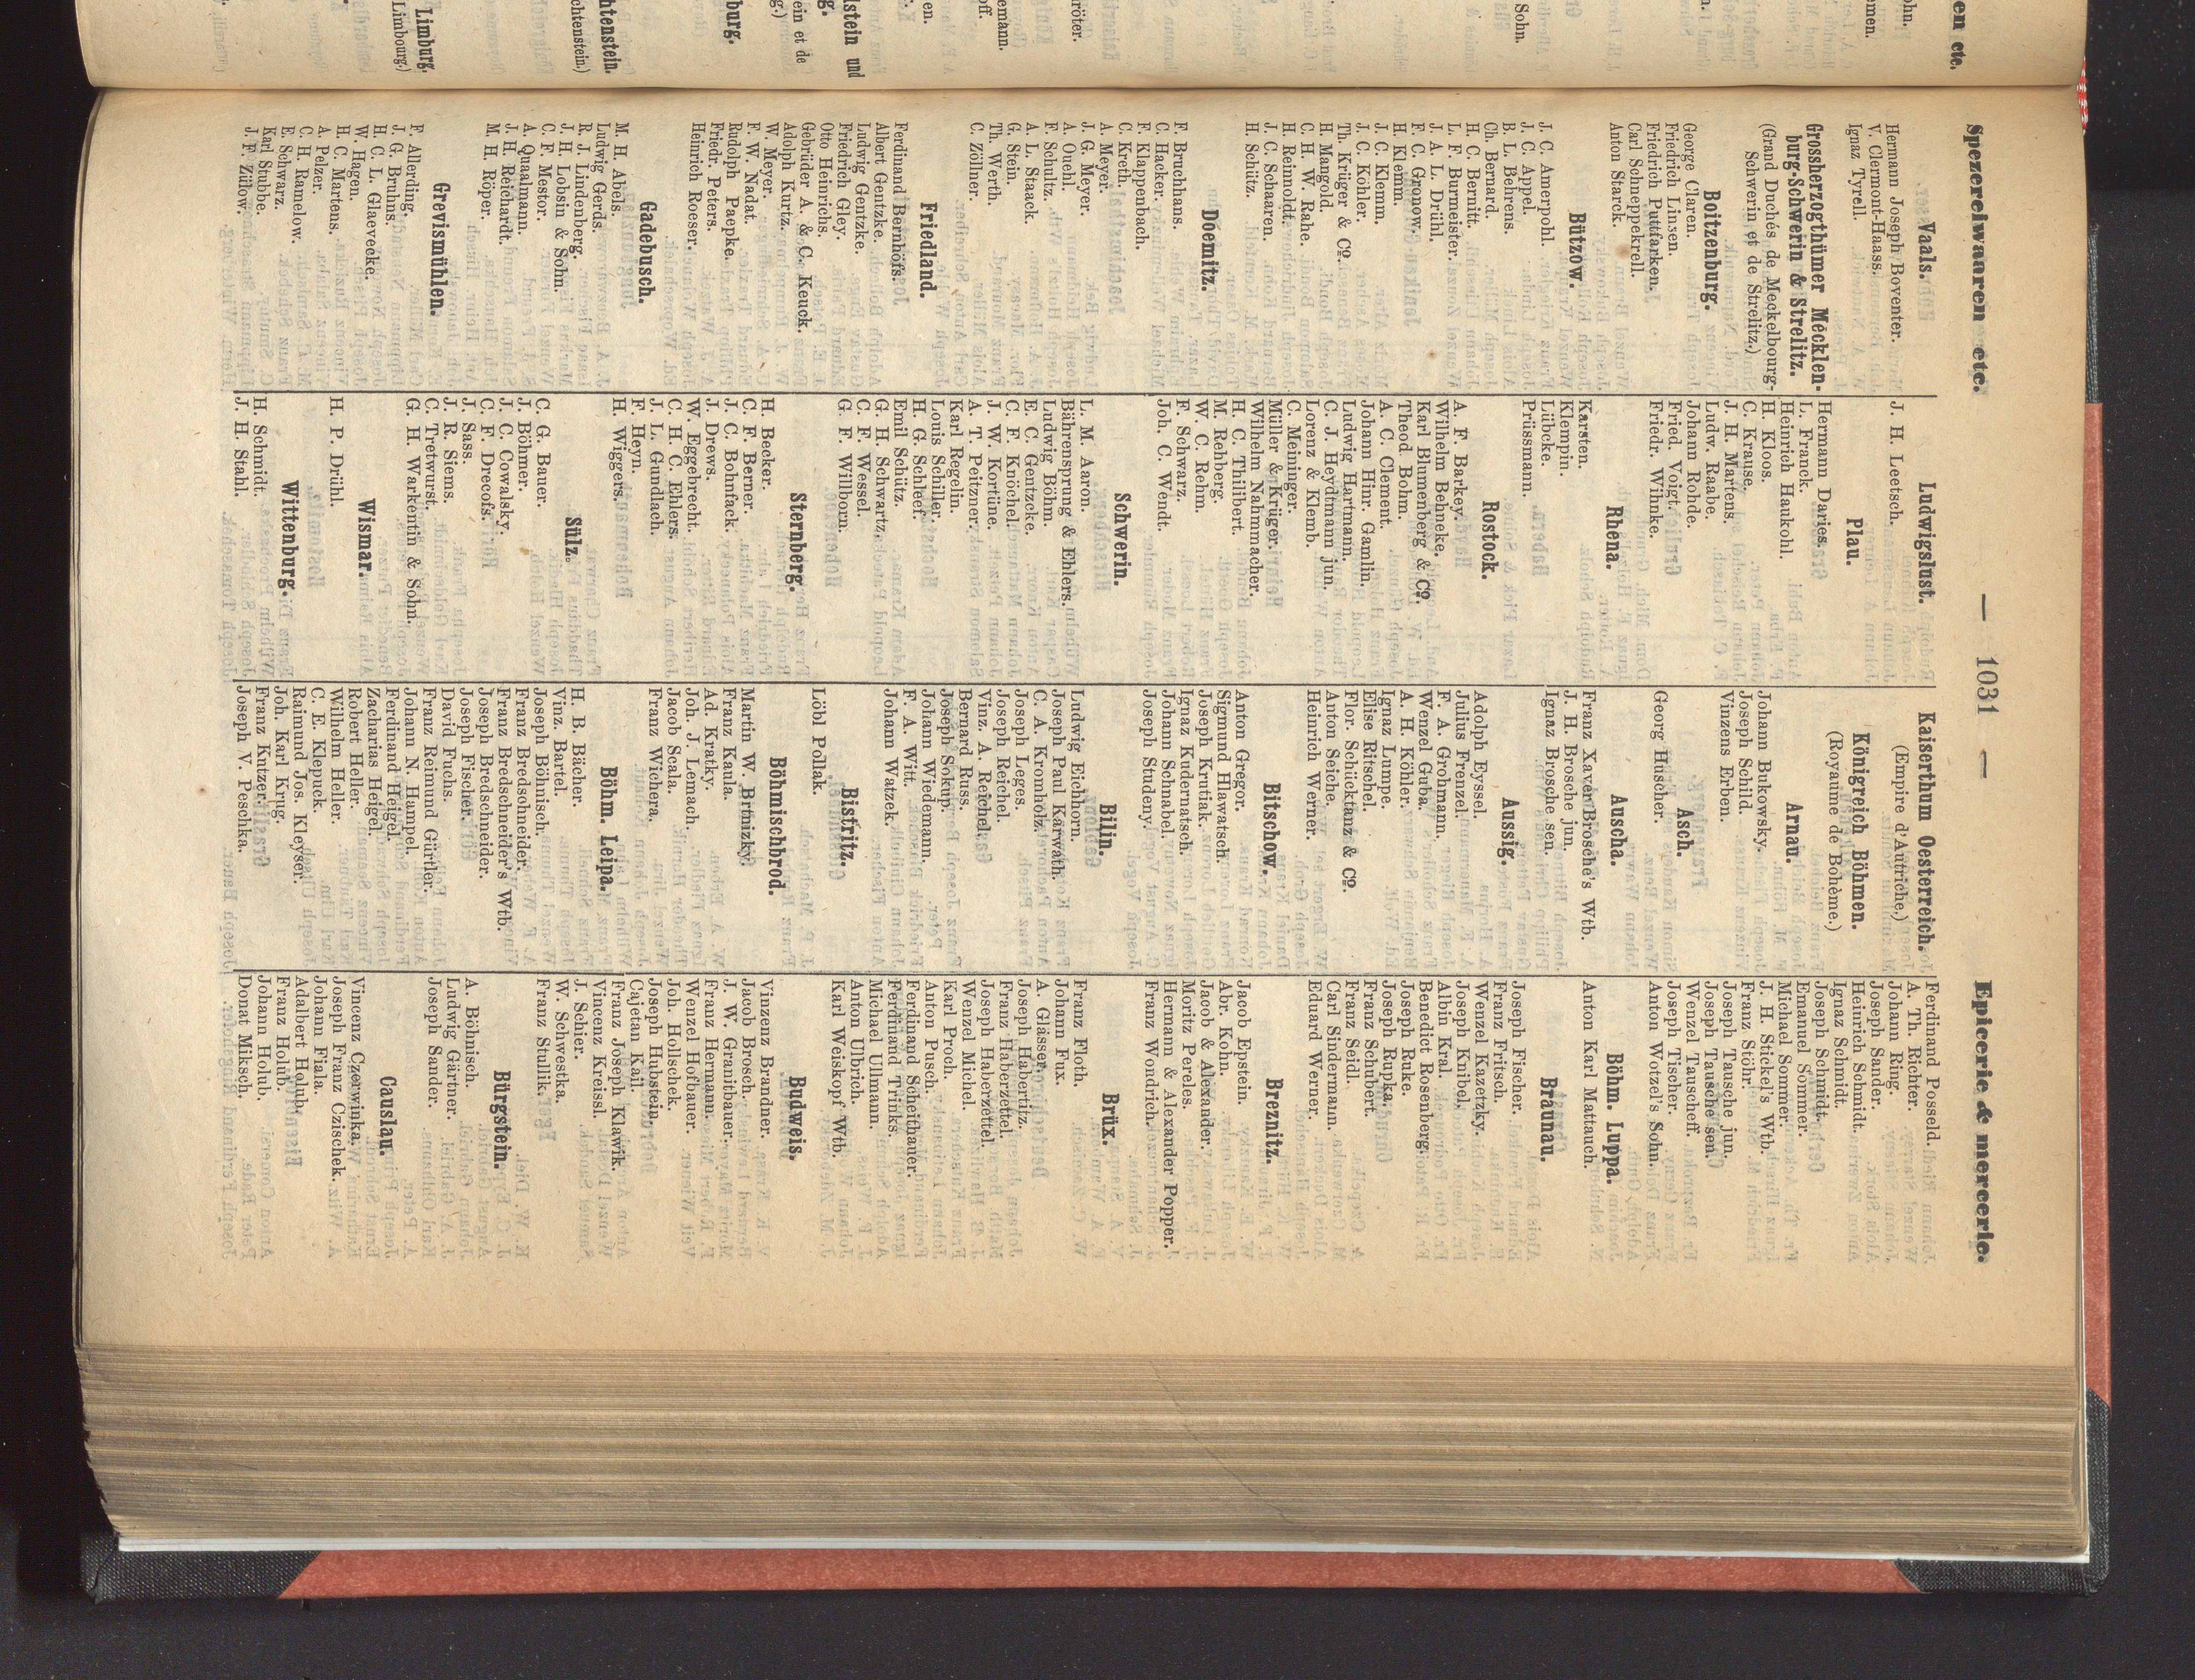 Spezereiwaaren etc.
— 1031 —
Epicerie & mercerie.
Vaals.
Hermann Joseph Boventer.
V. Clermont-Haass.
Ignaz Tyrell.
Grossherzogthümer Mecklen-
burg-Schwerin & Strelitz.
(Grand Duchés de Meckelbourg-
Schwerin et de Strelitz.)
Boitzenburg.
George Claren.
Friedrich Linsen.
Friedrich Puttfarken.
Carl Schneppekrell.
Anton Starck.
Bützow.
J. C. Amerpohl.
J. C. Appel.
B. L. Behrens.
Ch. Bernard.
H. C. Bernitt.
L. F. Burmeister.
J. A. L. Drühl.
F. C. Gronow.
H. Klemm.
J. C. Klemm.
J. C. Köhler.
Th. Krüger & Co.
H. Mangold.
C. H. W. Rahe.
H. Reinnoldt.
J. C. Schaaren.
H. Schütz.
Dœmitz.
F. Bruchhans.
C. Hacker.
F. Klappenbach.
C. Kreth.
A. Meyer.
J. G. Meyer.
A. Ouchl.
F. Schultz.
A. L. Staack.
G. Stein.
Th. Werth.
C. Zöllner.
Friedland.
Ferdinand Bernhöfs.
Albert Gentzke.
Ludwig Gentzke.
Friedrich Gley.
Otto Heinrichs.
Gebrüder A. & C. Keuck.
Adolph Kurtz.
W. Meyer.
F. W. Nadat.
Rudolph Paepke.
Friedr. Peters.
Heinrich Roeser.
Gadebusch.
M. H. Abels.
Ludwig Gerds.
R. J. Lindenberg.
J. H. Lobsin & Sohn.
C. F. Mestor.
A. Quaalmann.
J. H. Reichardt.
M. H. Röper.
Grevismühlen.
F. Allerding.
J. G. Bruhns.
H. C. L. Glaevecke.
W. Hagen.
H. C. Martens.
A. Pelzer.
C. H. Ramelow.
E. Schwarz.
Karl Stubbe.
J. F. Zülow.
Ludwigslust.
J. H. Leetsch.
Plau.
Hermann Daries.
L. Franck.
Heinrich Haukohl.
H. Kloos.
C. Krause.
J. H. Martens.
Ludw. Raabe.
Johann Rohde.
Fried. Voigt.
Friedr. Wihnke.
Rhena.
Karsten.
Klempin.
Lübcke.
Prüssmann.
Rostock.
A. F. Barkey.
Wilhelm Behneke.
Karl Blumenberg & Co.
Theod. Bohm.
A. C. Clement.
Johann Hinr. Gamlin.
Ludwig Hartmann.
C. J. Heydtmann jun.
Lorenz & Klemb.
C. Meininger.
Müller & Krüger.
Wilhelm Nahmmacher.
H. C. Thilibert.
M. Rehberg.
W. C. Rehm.
F. Schwarz.
Joh. C. Wendt.
Schwerin.
L. M. Aaron.
Bährensprung & Ehlers.
Ludwig Böhm.
E. C. Gentzcke.
C. F. Knöchel.
J. W. Kortüne.
A. T. Peitzner.
Karl Regelin.
Louis Schiller.
H. G. Schleef.
Emil Schütz.
G. H. Schwartz.
C. F. Wessel.
G. F. Willborn.
Sternberg.
H. Becker.
C. F. Berner.
J. C. Bohnfack.
J. Drews.
W. Eggebrecht.
C. H. C. Ehlers.
J. L. Gundlach.
F. Heyn.
H. Wiggers.
Sülz.
C. G. Bauer.
J. Böhmer.
J. C. Cowalsky.
C. F. Drecofs.
J. Sass.
J. R. Siems.
C. Tretwurst.
G. H. Warkentin & Sohn.
Wismar.
H. P. Drühl.
Wittenburg.
H. Schmidt.
J. H. Stahl.
Kaiserthum Oesterreich.
(Empire d'Autriche.)
Königreich Böhmen.
(Royaume de Bohème.)
Arnau.
Johann Bukowsky.
Joseph Schild.
Vinzens Erben.
Asch.
Georg Huscher.
Auscha.
Franz Xaver Brosche's Wtb.
J. H. Brosche jun.
Ignaz Brosche sen.
Aussig.
Adolph Eyssel.
Julius Frenzel.
F. A. Grohmann.
Wenzel Guba.
A. H. Köhler.
Ignaz Lumpe.
Elise Ritschel.
Flor. Schücktanz & Co.
Anton Seiche.
Heinrich Werner.
Bitschow.
Anton Gregor.
Sigmund Hlawatsch.
Joseph Krutiak.
Ignaz Kudernatsch.
Johann Schnabel.
Joseph Studeny.
Bilin.
Ludwig Eichhorn.
Joseph Paul Karwath.
C. A. Kromholz.
Joseph Leges.
Joseph Reichel.
Vinz. A. Reichel.
Bernard Russ.
Joseph Sokup.
Johann Wiedemann.
F. A. Witt.
Johann Watzek.
Bistritz.
Löbl Pollak.
Böhmischbrod.
Martin W. Brtnizky.
Franz Kaula.
Ad. Kratky.
Joh. J. Lemach.
Jacob Scala.
Franz Wichera.
Böhm. Leipa.
H. B. Bächer.
Vinz. Bartel.
Joseph Böhnisch.
Franz Bredschneider.
Franz Bredschneider's Wtb.
Joseph Bredschneider.
Joseph Fischer.
David Fuchs.
Franz Reimund Gürtler.
Johann N. Hampel.
Ferdinand Heigel.
Zacharias Heigel.
Robert Heller.
Wilhelm Heller.
C. E. Klepuck.
Raimund Jos. Kleyser.
Joh. Karl Krug.
Franz Kutzer.
Joseph V. Peschka.
Ferdinand Posseld.
A. Th. Richter.
Johann Ring.
Joseph Sander.
Heinrich Schmidt.
Ignaz Schmidt.
Joseph Schmidt.
Emanuel Sommer.
Michael Sommer.
J. H. Stickel's Wtb.
Franz Stöhr.
Joseph Tausche jun.
Joseph Tausche sen.
Wenzel Tauscheff.
Joseph Tischer.
Anton Wotzel's Sohn.
Böhm. Luppa.
Anton Karl Mattauch.
Braunau.
Joseph Fischer.
Franz Fritsch.
Wenzel Kazetzky.
Joseph Knibel.
Albin Kral.
Benedict Rosenberg.
Joseph Ruke.
Joseph Rupka.
Franz Schubert.
Franz Seidl.
Carl Sindermann.
Eduard Werner.
Breznitz.
Jacob Epstein.
Abr. Kohn.
Jacob & Alexander.
Moritz Pereles.
Hermann & Alexander Popper.
Franz Wondrich.
Brüx.
Franz Floth.
Johann Fux.
A. Glässer.
Joseph Habertitz.
Franz Haberzettel.
Joseph Haberzettel.
Wenzel Michel.
Karl Proch.
Anton Pusch.
Ferdinand Scheithauer.
Ferdinand Trinks.
Michael Ullmann.
Anton Ulbrich.
Karl Weiskopf Wtb.
Budweis.
Vinzenz Brandner.
Jacob Brosch.
J. W. Granitbauer.
Franz Hermann.
Wenzel Hofbauer.
Joh. Hollschek.
Joseph Hubstein.
Cajetan Kail.
Franz Joseph Klawik.
Vincenz Kreissl.
J. Schier.
W. Schwestka.
Franz Stullik.
Bürgstein.
A. Böhmisch.
Ludwig Gärtner.
Joseph Sander.
Causlau.
Vincenz Czerwinka.
Joseph Franz Czischek.
Johann Fiala.
Adalbert Holub.
Franz Holub.
Johann Holub.
Donat Miksch.